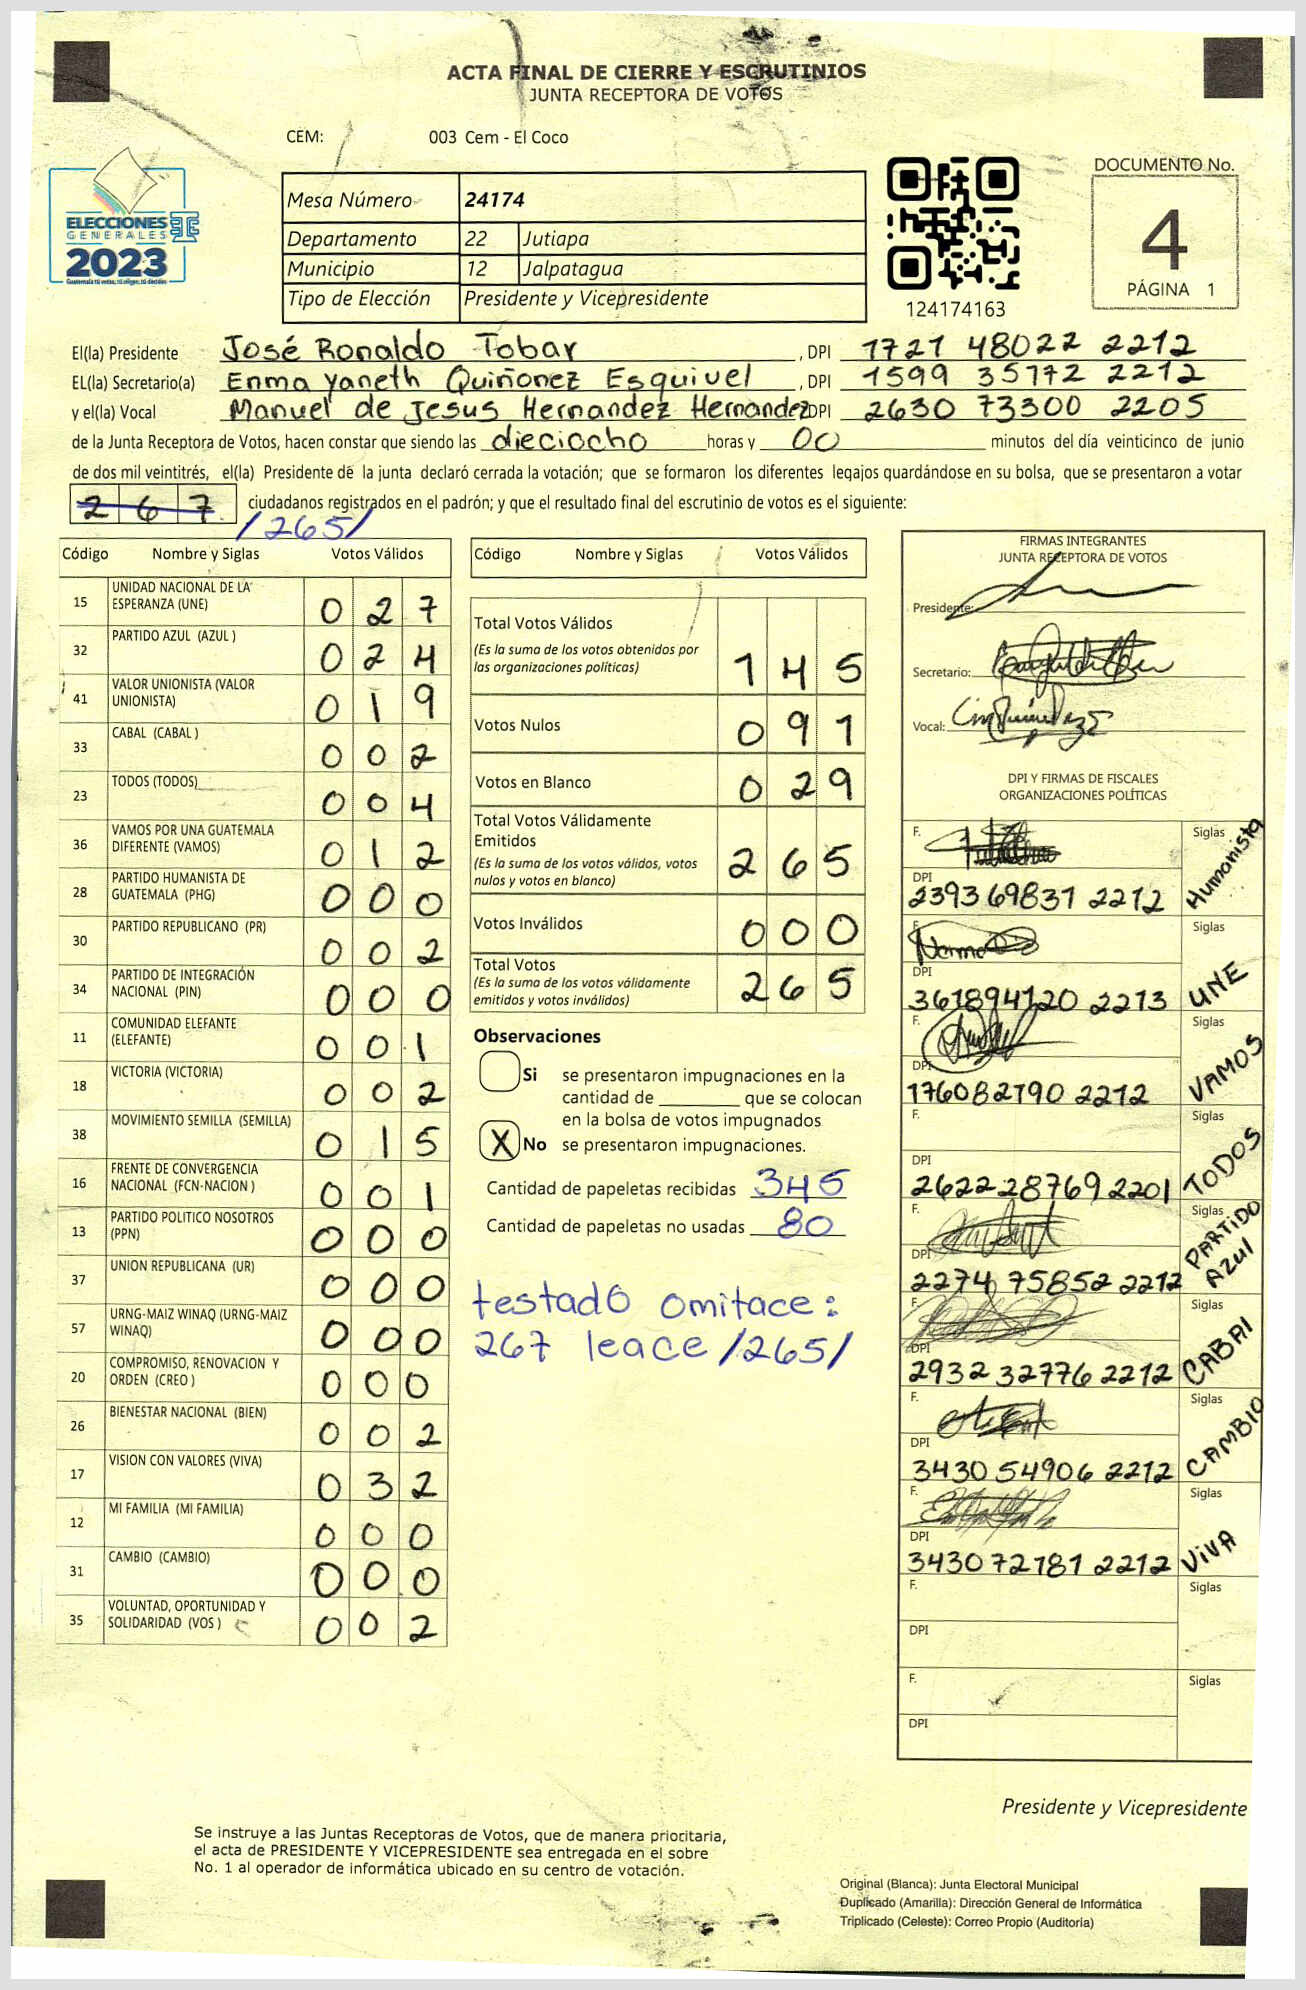 ACTA FINAL DE CIERRE Y ESCRUTINIOS
JUNTA RECEPTORA DE VOTOS
CEM: 003 Cem - El Coco
ELECCIONES
GENERALES
2023
Guatemala tú votas, tú eliges, tú decides
Mesa Número 24174
Departamento 22 Jutiapa
Municipio 12 Jalpatagua
Tipo de Elección Presidente y Vicepresidente
124174163
DOCUMENTO No.
4
PÁGINA 1
El(la) Presidente José Ronaldo Tobar , DPI 1721 48022 2212
EL(la) Secretario(a) Enma Yaneth Quiñonez Esquivel , DPI 1599 35172 2212
y el(la) Vocal Manuel de Jesus Hernandez Hernandez DPI 2630 73300 2205
de la Junta Receptora de Votos, hacen constar que siendo las dieciocho horas y 00 minutos del día veinticinco de junio
de dos mil veintitrés, el(la) Presidente de la junta declaró cerrada la votación; que se formaron los diferentes legajos guardándose en su bolsa, que se presentaron a votar
267 ciudadanos registrados en el padrón; y que el resultado final del escrutinio de votos es el siguiente:
/265/
Código Nombre y Siglas Votos Válidos
15 UNIDAD NACIONAL DE LA ESPERANZA (UNE) 0 2 7
32 PARTIDO AZUL (AZUL ) 0 2 4
41 VALOR UNIONISTA (VALOR UNIONISTA) 0 1 9
33 CABAL (CABAL ) 0 0 2
23 TODOS (TODOS) 0 0 4
36 VAMOS POR UNA GUATEMALA DIFERENTE (VAMOS) 0 1 2
28 PARTIDO HUMANISTA DE GUATEMALA (PHG) 0 0 0
30 PARTIDO REPUBLICANO (PR) 0 0 2
34 PARTIDO DE INTEGRACIÓN NACIONAL (PIN) 0 0 0
11 COMUNIDAD ELEFANTE (ELEFANTE) 0 0 1
18 VICTORIA (VICTORIA) 0 0 2
38 MOVIMIENTO SEMILLA (SEMILLA) 0 1 5
16 FRENTE DE CONVERGENCIA NACIONAL (FCN-NACION ) 0 0 1
13 PARTIDO POLITICO NOSOTROS (PPN) 0 0 0
37 UNION REPUBLICANA (UR) 0 0 0
57 URNG-MAIZ WINAQ (URNG-MAIZ WINAQ) 0 0 0
20 COMPROMISO, RENOVACION Y ORDEN (CREO ) 0 0 0
26 BIENESTAR NACIONAL (BIEN) 0 0 2
17 VISION CON VALORES (VIVA) 0 3 2
12 MI FAMILIA (MI FAMILIA) 0 0 0
31 CAMBIO (CAMBIO) 0 0 0
35 VOLUNTAD, OPORTUNIDAD Y SOLIDARIDAD (VOS ) 0 0 2
Código Nombre y Siglas Votos Válidos
Total Votos Válidos
(Es la suma de los votos obtenidos por
las organizaciones políticas) 1 4 5
Votos Nulos 0 9 1
Votos en Blanco 0 2 9
Total Votos Válidamente
Emitidos
(Es la suma de los votos válidos, votos
nulos y votos en blanco) 2 6 5
Votos Inválidos 0 0 0
Total Votos
(Es la suma de los votos válidamente
emitidos y votos inválidos) 2 6 5
Observaciones
Si se presentaron impugnaciones en la
cantidad de ________ que se colocan
en la bolsa de votos impugnados
X No se presentaron impugnaciones.
Cantidad de papeletas recibidas 345
Cantidad de papeletas no usadas 80
testadó omitace:
267 leace /265/
FIRMAS INTEGRANTES
JUNTA RECEPTORA DE VOTOS
Presidente:
Secretario:
Vocal:
DPI Y FIRMAS DE FISCALES
ORGANIZACIONES POLÍTICAS
F. Siglas Humanista
DPI
2393 69831 2212
F. Siglas UNE
DPI
361894120 2213
F. Siglas VAMOS
DPI
176082190 2212
F. Siglas TODOS
DPI
2622 28769 2201
F. Siglas PARTIDO AZUL
DPI
2274 75852 2212
F. Siglas CABAl
DPI
2932 32776 2212
F. Siglas CAMBIO
DPI
3430 54906 2212
F. Siglas ViVA
DPI
3430 72181 2212
F. Siglas
DPI
F. Siglas
DPI
Presidente y Vicepresidente
Se instruye a las Juntas Receptoras de Votos, que de manera prioritaria,
el acta de PRESIDENTE Y VICEPRESIDENTE sea entregada en el sobre
No. 1 al operador de informática ubicado en su centro de votación.
Original (Blanca): Junta Electoral Municipal
Duplicado (Amarilla): Dirección General de Informática
Triplicado (Celeste): Correo Propio (Auditoría)